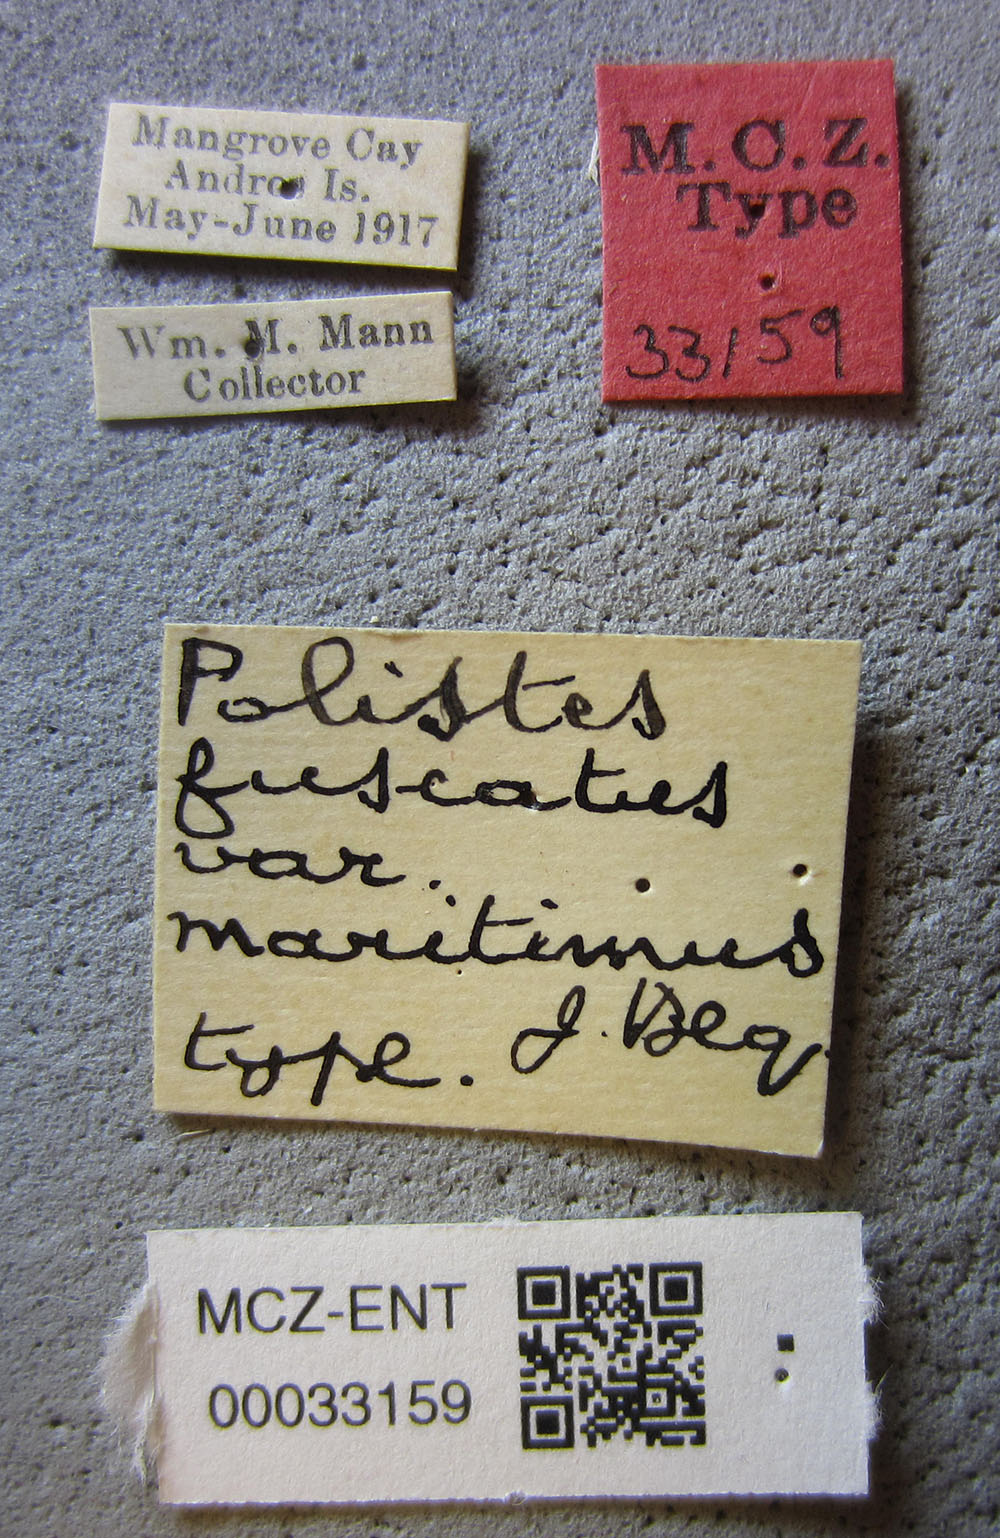 Mangrove Cay
Andros Is.
May-June 1917
Wm. M. Mann
Collector
M. C. Z.
Type
33159
Polistes
fuscatus
var.
maritimus
type. J. Beq.
MCZ-ENT
00033159